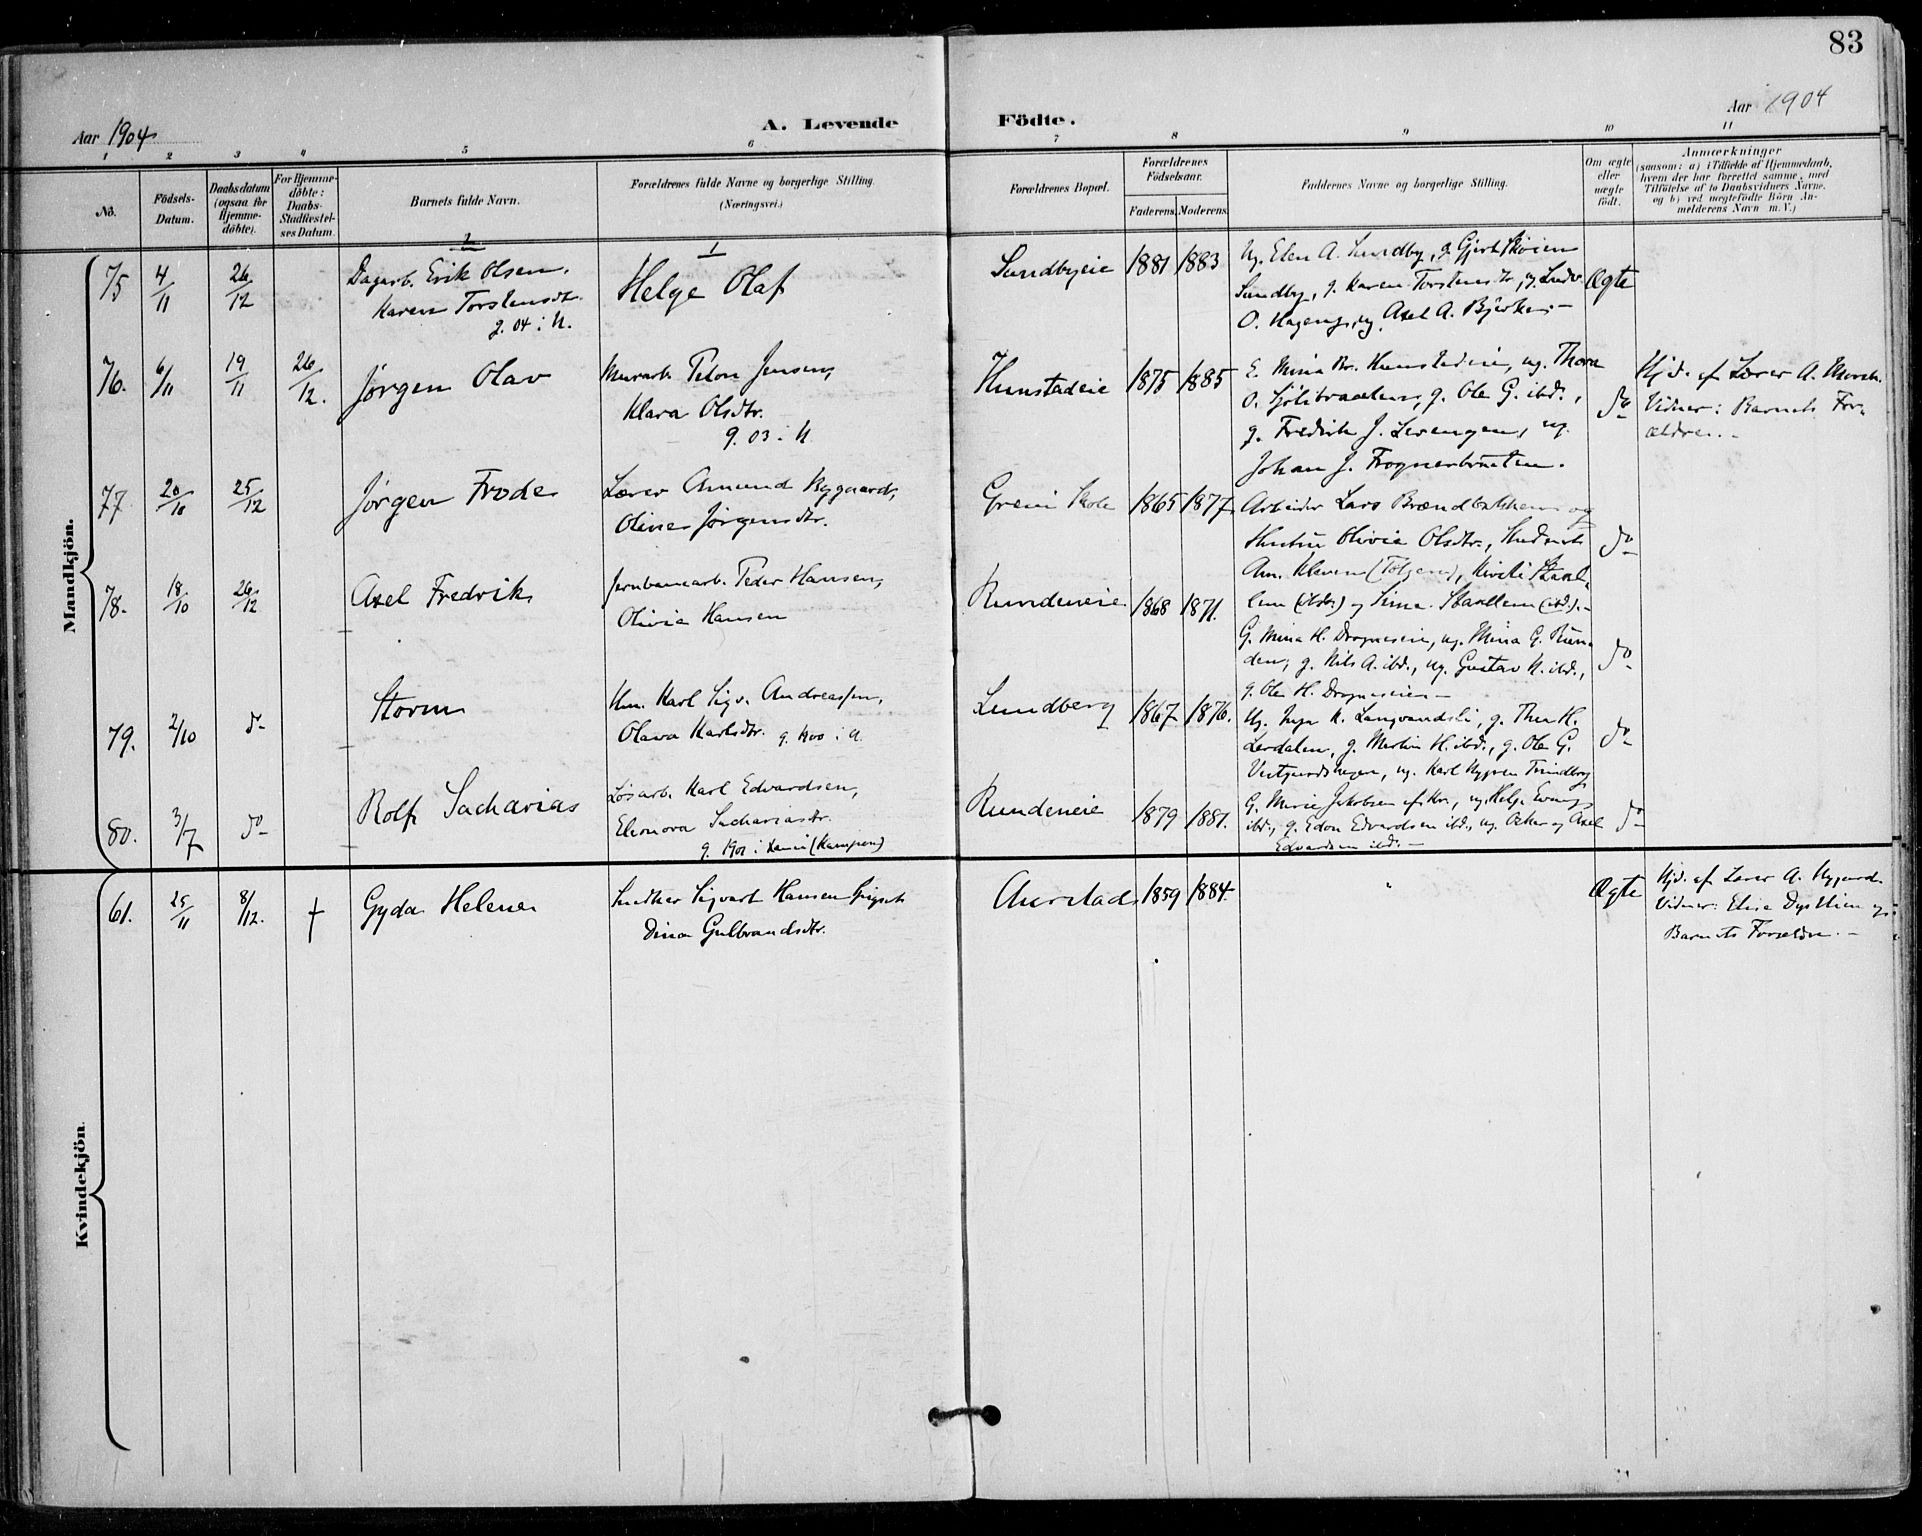 83
Aar 1904
A. Levende
Födte.
Aar 1904
1 2 3 4 5 6 7 8 9 10 11
No.
Födsels-
Datum.
Daabsdatum
(ogsaa for
Hjemme-
döbte).
For Hjemme-
döbte:
Daabs-
Stadfæstel-
ses Datum.
Barnets fulde Navn.
Forældrenes fulde Navne og borgerlige Stilling.
(Næringsvei.)
Forældrenes Bopæl.
Forældrenes
Födselsaar.
Faderens. Moderens.
Faddernes Navne og borgerlige Stilling.
Om ægte
eller
uægte
födt.
Anmærkninger
(saasom: a) i Tilfælde af Hjemmedaab,
hvem der har forrettet samme, med
Tilföielse af to Daabsvidners Navne,
og b) ved uægtefödte Börn An-
melderens Navn m. V.)
Mandkjön.
75 4/11 26/12
2
Dagarb. Erik Olsen,
Karen Torstensdtr.
g. 04 i N.
1
Helge Olaf
Sundbyeie 1881 1883
Ug. Elen A. Sundby, g. Gjert Skøien
Sundby, g. Karen Torstensdtr, g. Ludv.
O. Hagen, ug. Axel A. Bjerke.-
Ægte
76. 6/11 19/11 26/12.
Jørgen Olav
Murarb. Peter Jensen,
Klara Olsdtr.
g. 03 i N
Hunstadeie 1875 1885
E. Mina Br. Hunstadeie, ug. Thora
O. g. Ole G. ibd.,
g. Fredrik J. Levengen, ug.
Johan J. Frognerbraaten.
do
Hjd. af Lærer A.
Vidner: Barnets For-
ældre. -
77 20/10 25/12
Jørgen Frode
Lærer Amund Nygaard,
Oline Jørgensdtr.
Greni Skole 1865 1877
Arbeider Lars og
Hustru Olivia Olsdtr., Student
Am. Kleven (Tolgen), Kirsti
(ibd.) og (ibd.).-
do
78. 18/10 26/12
Axel Fredrik
Jernbanearb. Peder Hansen,
Olivia Hansen
Rundeneie 1868 1871.
G. Mina H. Drogneseie, ug. Mina G. Run-
den, g. Nils A. ibd., ug. Gustav N. ibd.,
g. Ole H. Drogneseie -
do
79. 2/10 do
Storm
Hm. Karl Sigv. Andreassen,
Olava Karlsdtr. g. 1900 i N.
Lundberg 1867 1876.
Ug. Inga K. Langvandsli, g. Thea H.
Lerdalen, g. Martin H. ibd., g. Ole G.
Vestgaardshagen, ug. Karl
do
80. 3/7 do
Rolf Sacharias
Løsarb. Karl Edvardsen,
Eleonora Sachariasdtr.
g. 1901 i (Kampen)
Rundeneie 1879 1881.
G. Marie Jakobsen af Kra, ug. Helga
ibd., g. Edon Edvardsen ibd., ug. Oskar og Axel
Edvardsen ibd. -
do
Kvindekjön.
61. 25/11 8/12. †
Gyda Helene
Snedker Sigvart Hansen
Dina Gulbrandsdtr.
Aurstad 1859 1884.
"
Ægte
Hjd. af Lærer A. Nygaard.
Vidner: Elise Dysthien og
Barnets Forældre. -